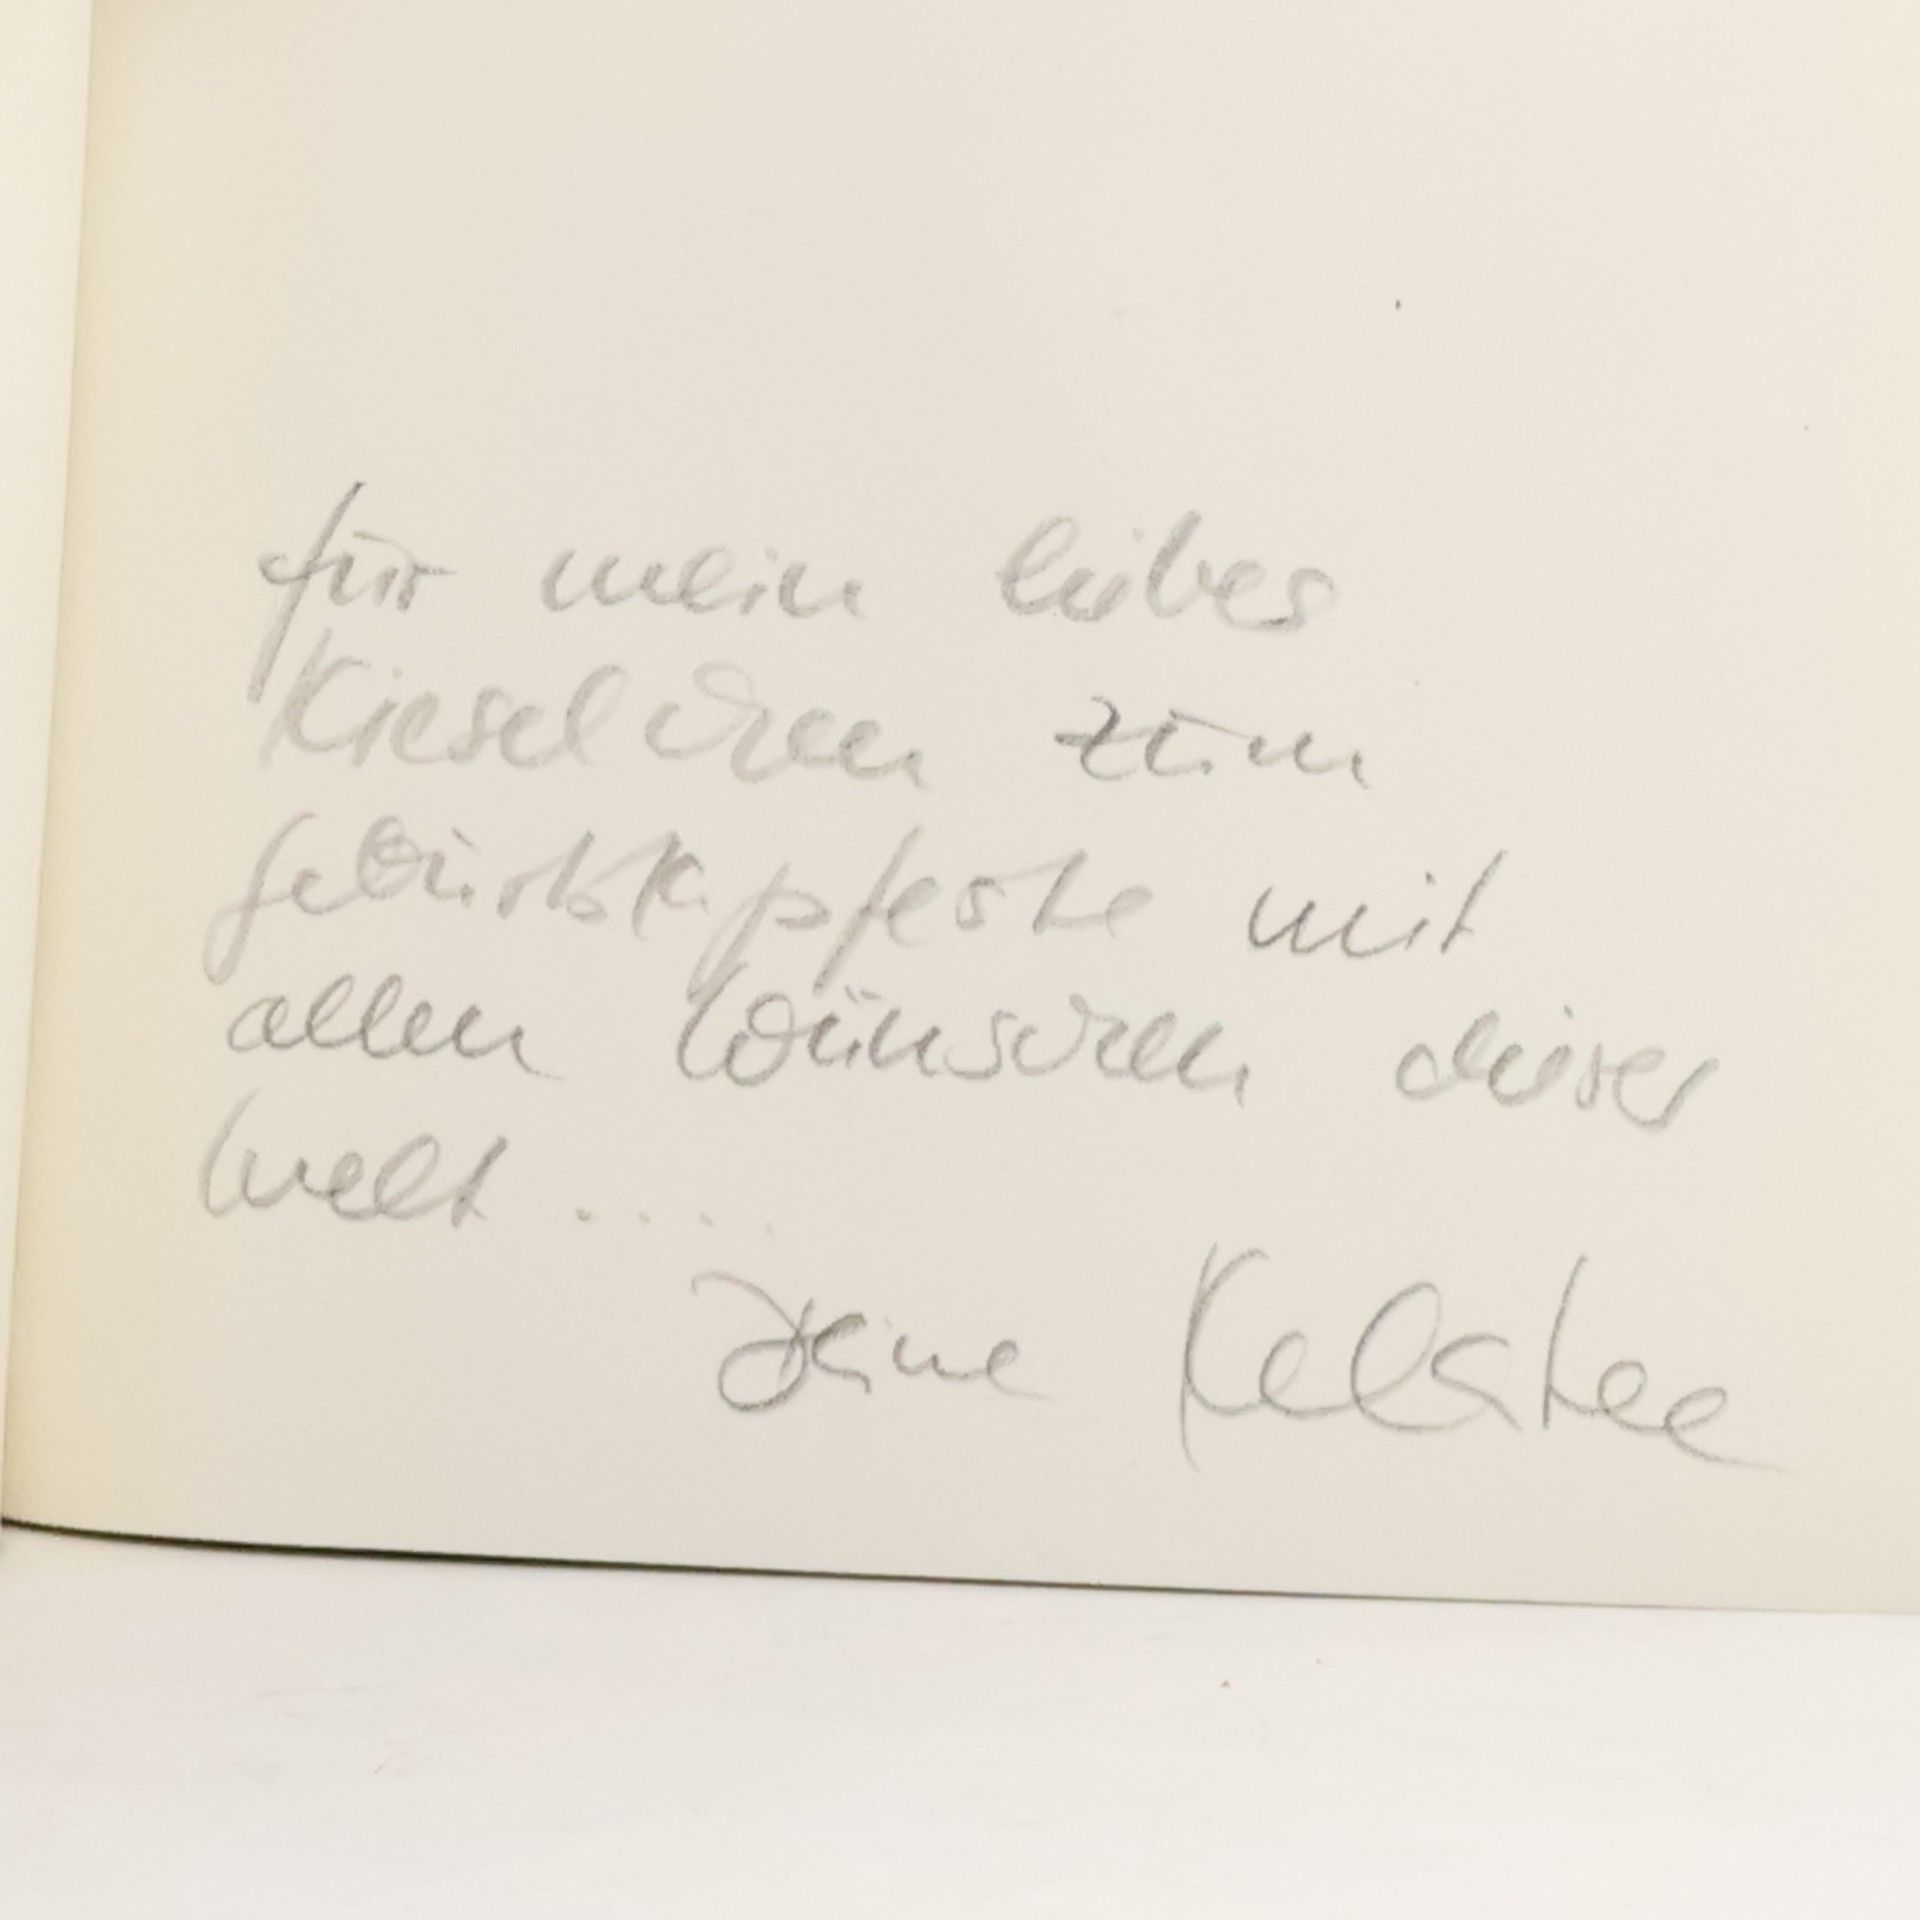 für mein liebes
Kieselchen zum
mit
allen Wünschen dieser
Welt ....
Deine